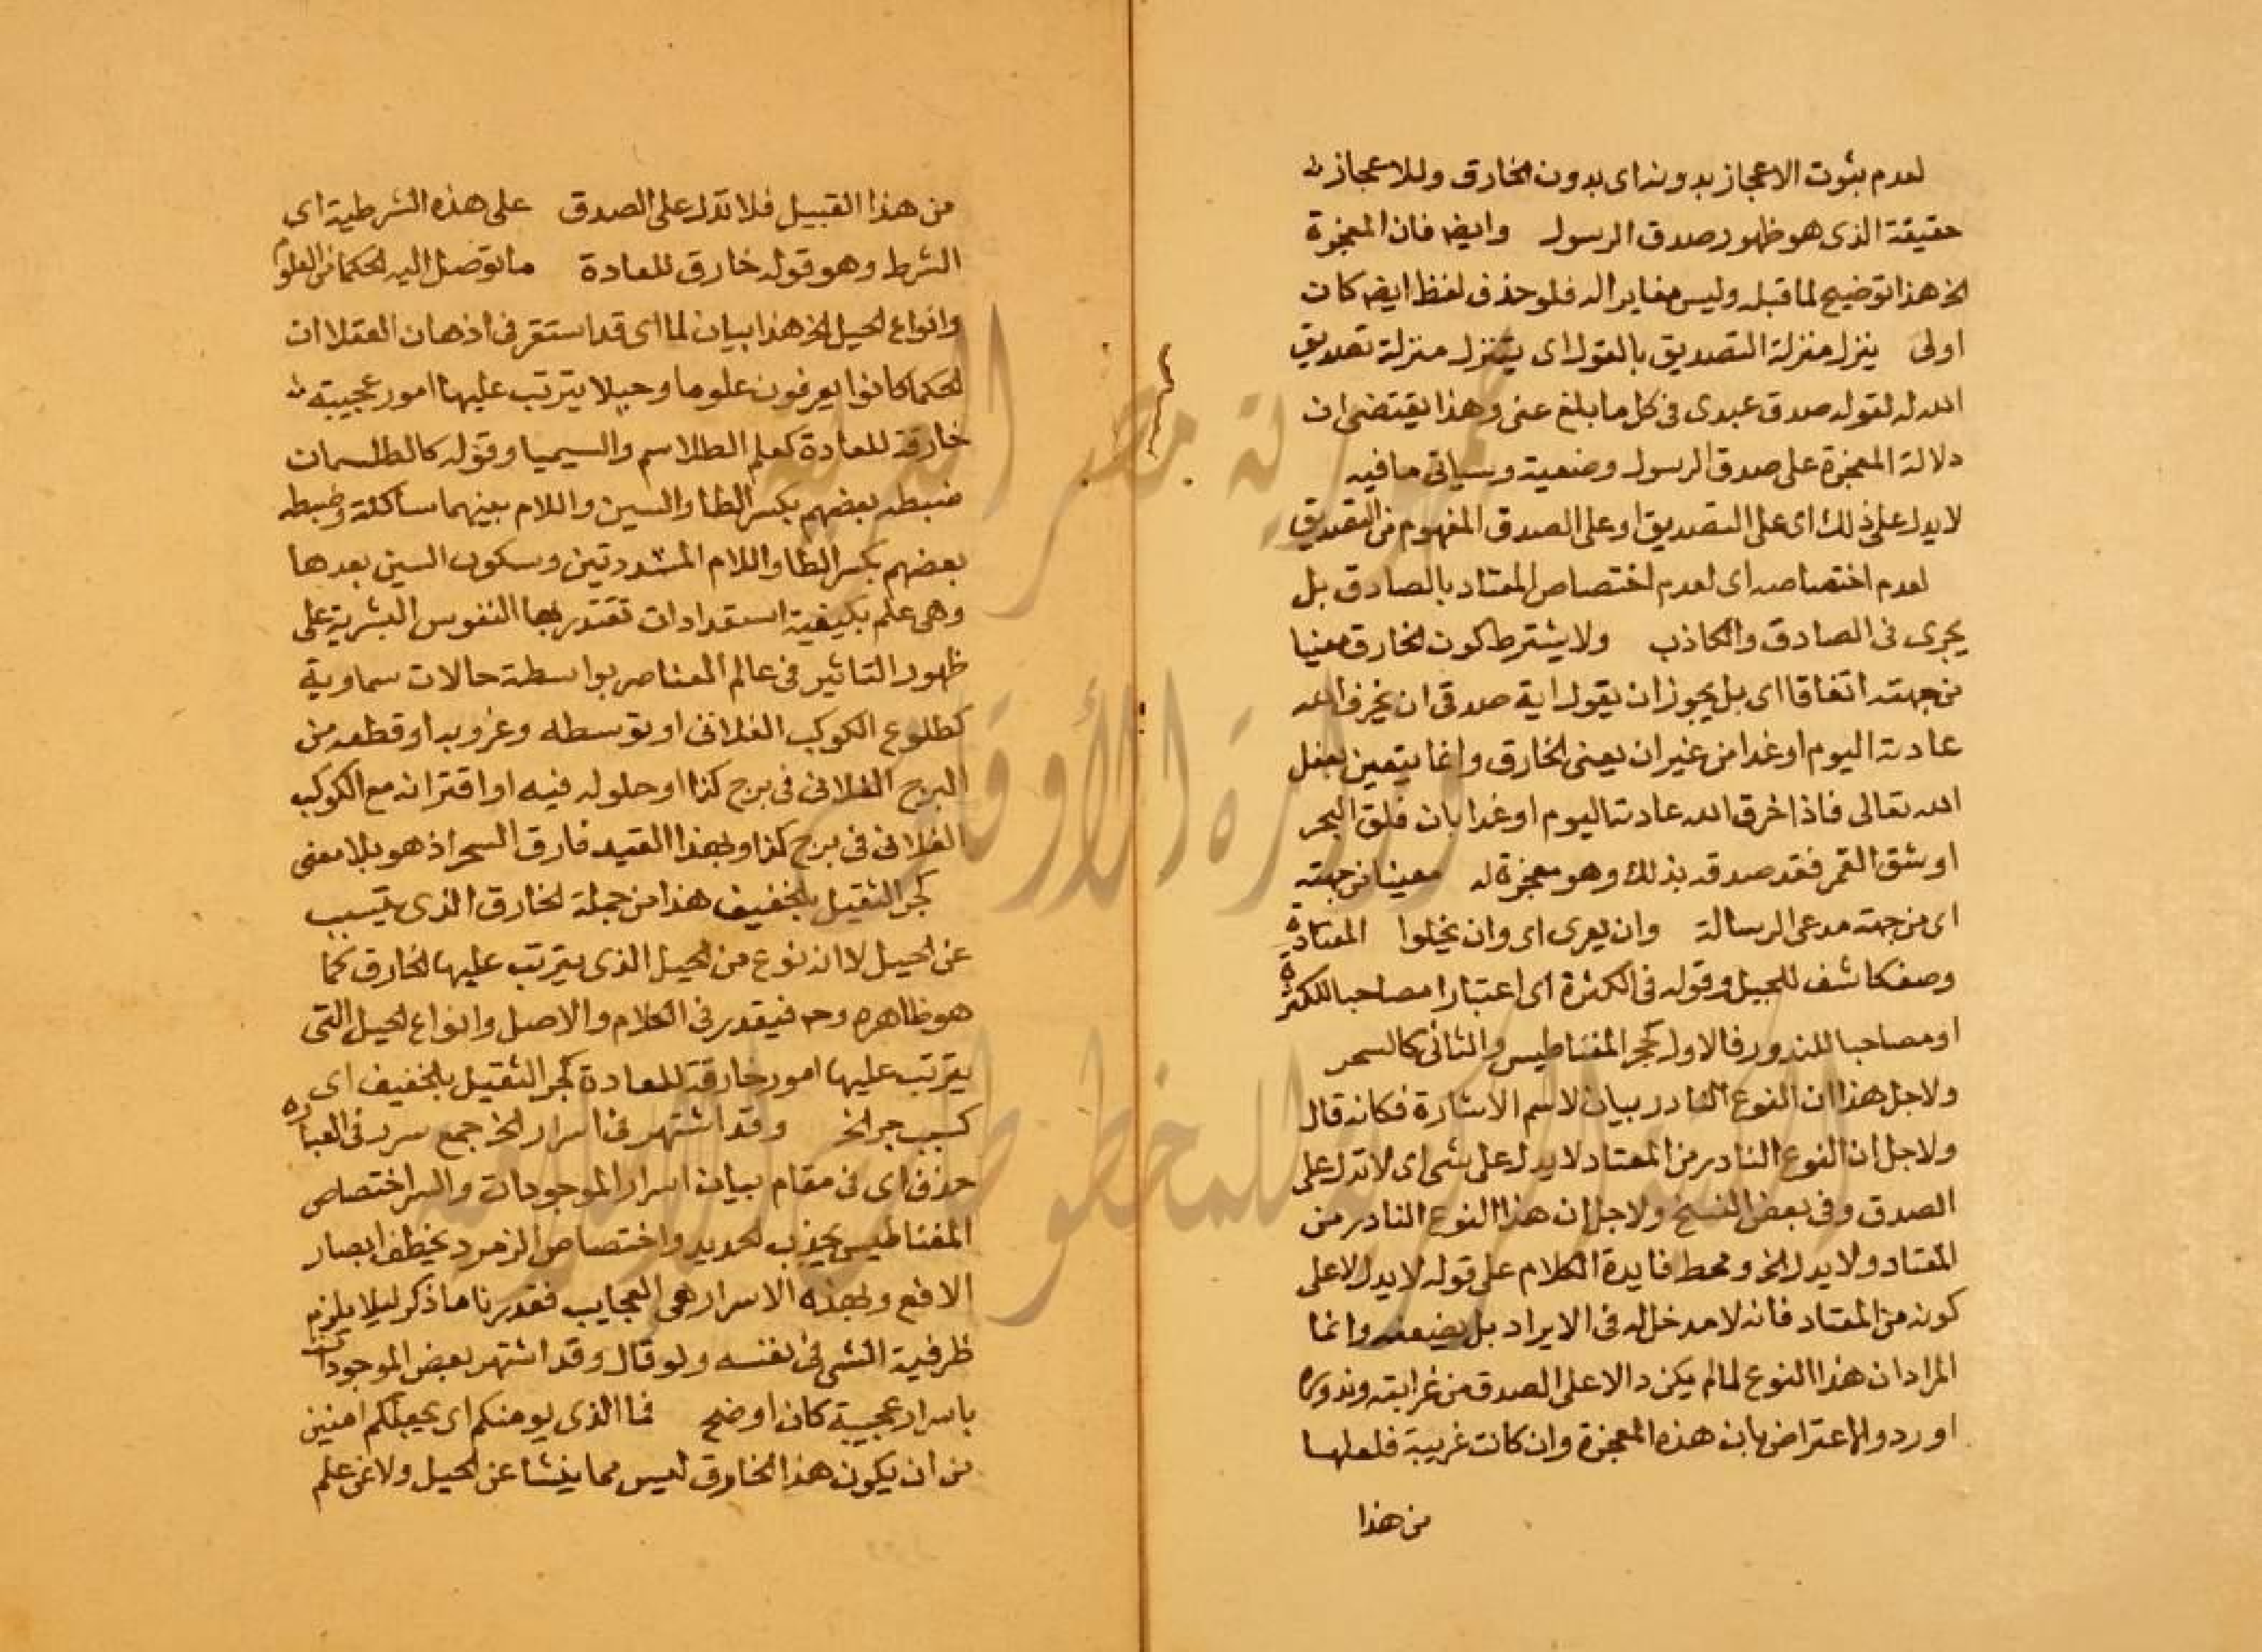 لعدم ثبوت الاعجاز بدونه اى بدون الخارق وللاعجاز
حقيقة الذى هو ظهور صدق الرسول وايضه فان المعجزة
الخ هذا توضيح لما قبله وليس مغايرا له فلو حذف لفظ ايضه كان
اولى ينزل منزلة التصديق بالقول اى يتنزل منزلة تصديق
الله له لقوله صدق عبدى فى كل ما بلغ عنى وهذا يقتضى ان
دلالة المعجزة على صدق الرسول وضعية وسياتى ما فيه
لا يدل على ذلك اى على التصديق او على الصدق المفهوم من التصديق
لعدم اختصاصه اى لعدم اختصاص المعتاد بالصادق بل
يجرى فى الصادق والكاذب ولا يشترط كون الخارق معينا
من جهته اتفاقا اى بل يجوز ان يقول اية صدقى ان يخرق الله
عادته اليوم او غدا من غير ان يعنى الخارق وانما يتعين بفعل
الله تعالى فاذا خرق الله عادته اليوم او غدا بان فلق البحر
او شق القمر فقد صدقه بذلك وهو معجزة له معينا من جهته
اى من جهة مدعى الرسالة وان يعرى اى وان يخلوا المعتادة
وصف كاشف للحيل وقوله فى الكثرة اى اعتبارا مصاحبا للكثرة
او مصاحبا للندور فالاول كحجر المغناطيس والثانى كالسحر
ولاجل هذا ان النوع النادر بيان لاسم الاشارة فكانه قال
ولاجل ان النوع النادر من المعتاد لا يدل على شى اى لا تدل على
الصدق وفى بعض النسخ ولاجل ان هذا النوع النادر من
المعتاد ولا يدل الخ ومحط فايدة الكلام على قوله لا يدل لا على
كونه من المعتاد فانه لا مدخل له فى الايراد بل يضعفه وانما
المراد ان هذا النوع لما لم يكن دالا على الصدق من غرابته وندوره
اوردوا الاعتراض بان هذه المعجزة وان كانت غريبة فلعلها
من هذا
من هذا القبيل فلا تدل على الصدق على هذه الشرطية اى
الشرط وهو قوله خارق للعادة ما توصل اليه الحكما من العلوم
وانواع الحيل الخ هذا بيان لما اى قد استقر فى اذهان العقلا ان
الحكما كانوا يعرفون علوما وحيلا يترتب عليها امور عجيبة
خارقة للعادة كعلم الطلاسم والسيميا وقوله كالطلسمات
ضبطه بعضهم بكسر الطا والسين واللام بينهما ساكنة وضبطه
بعضهم بكسر الطا واللام المشددتين وسكون السين بعدها
وهى علم بكيفية استعدادات تقتدر بها النفوس البشرية على
ظهور التاثير فى عالم العناصر بواسطة حالات سماوية
كطلوع الكوكب الفلانى او توسطه وغروبه او قطعه من
البرج الفلانى فى برج كذا او حلوله فيه او اقترانه مع الكوكب
الفلانى فى برج كذا وبهذا القيد فارق السحر اذ هو بلا معنى
كجر الثقيل بالخفيف هذا من جملة الخارق الذى يتسبب
عن الحيل لا انه نوع من الحيل الذى يترتب عليها الخارق كما
هو ظاهره وح فيقدر فى الكلام والاصل وانواع الحيل التى
يترتب عليها امور خارقة للعادة كجر الثقيل بالخفيف اى
كسبب جر الخ وقد اشتهر فى اسرار الخ جمع سر فى العبارة
حذف اى فى مقام بيان اسرار الموجودات والسر اختصاص
المغناطيس بجذب الحديد واختصاص الزمرد بخطف ابصار
الافع وبهذه الاسرار هى العجايب فقدرنا ما ذكر ليلا يلزم
ظرفية الشى فى نفسه ولو قال وقد اشتهر بعض الموجودات
باسرار عجيبة كان اوضح فما الذى يومنكم اى يجعلكم امنين
من ان يكون هذا الخارق ليس مما ينشا عن الحيل ولا عن علم
جمهورية مصر العربية
وزارة الأوقاف